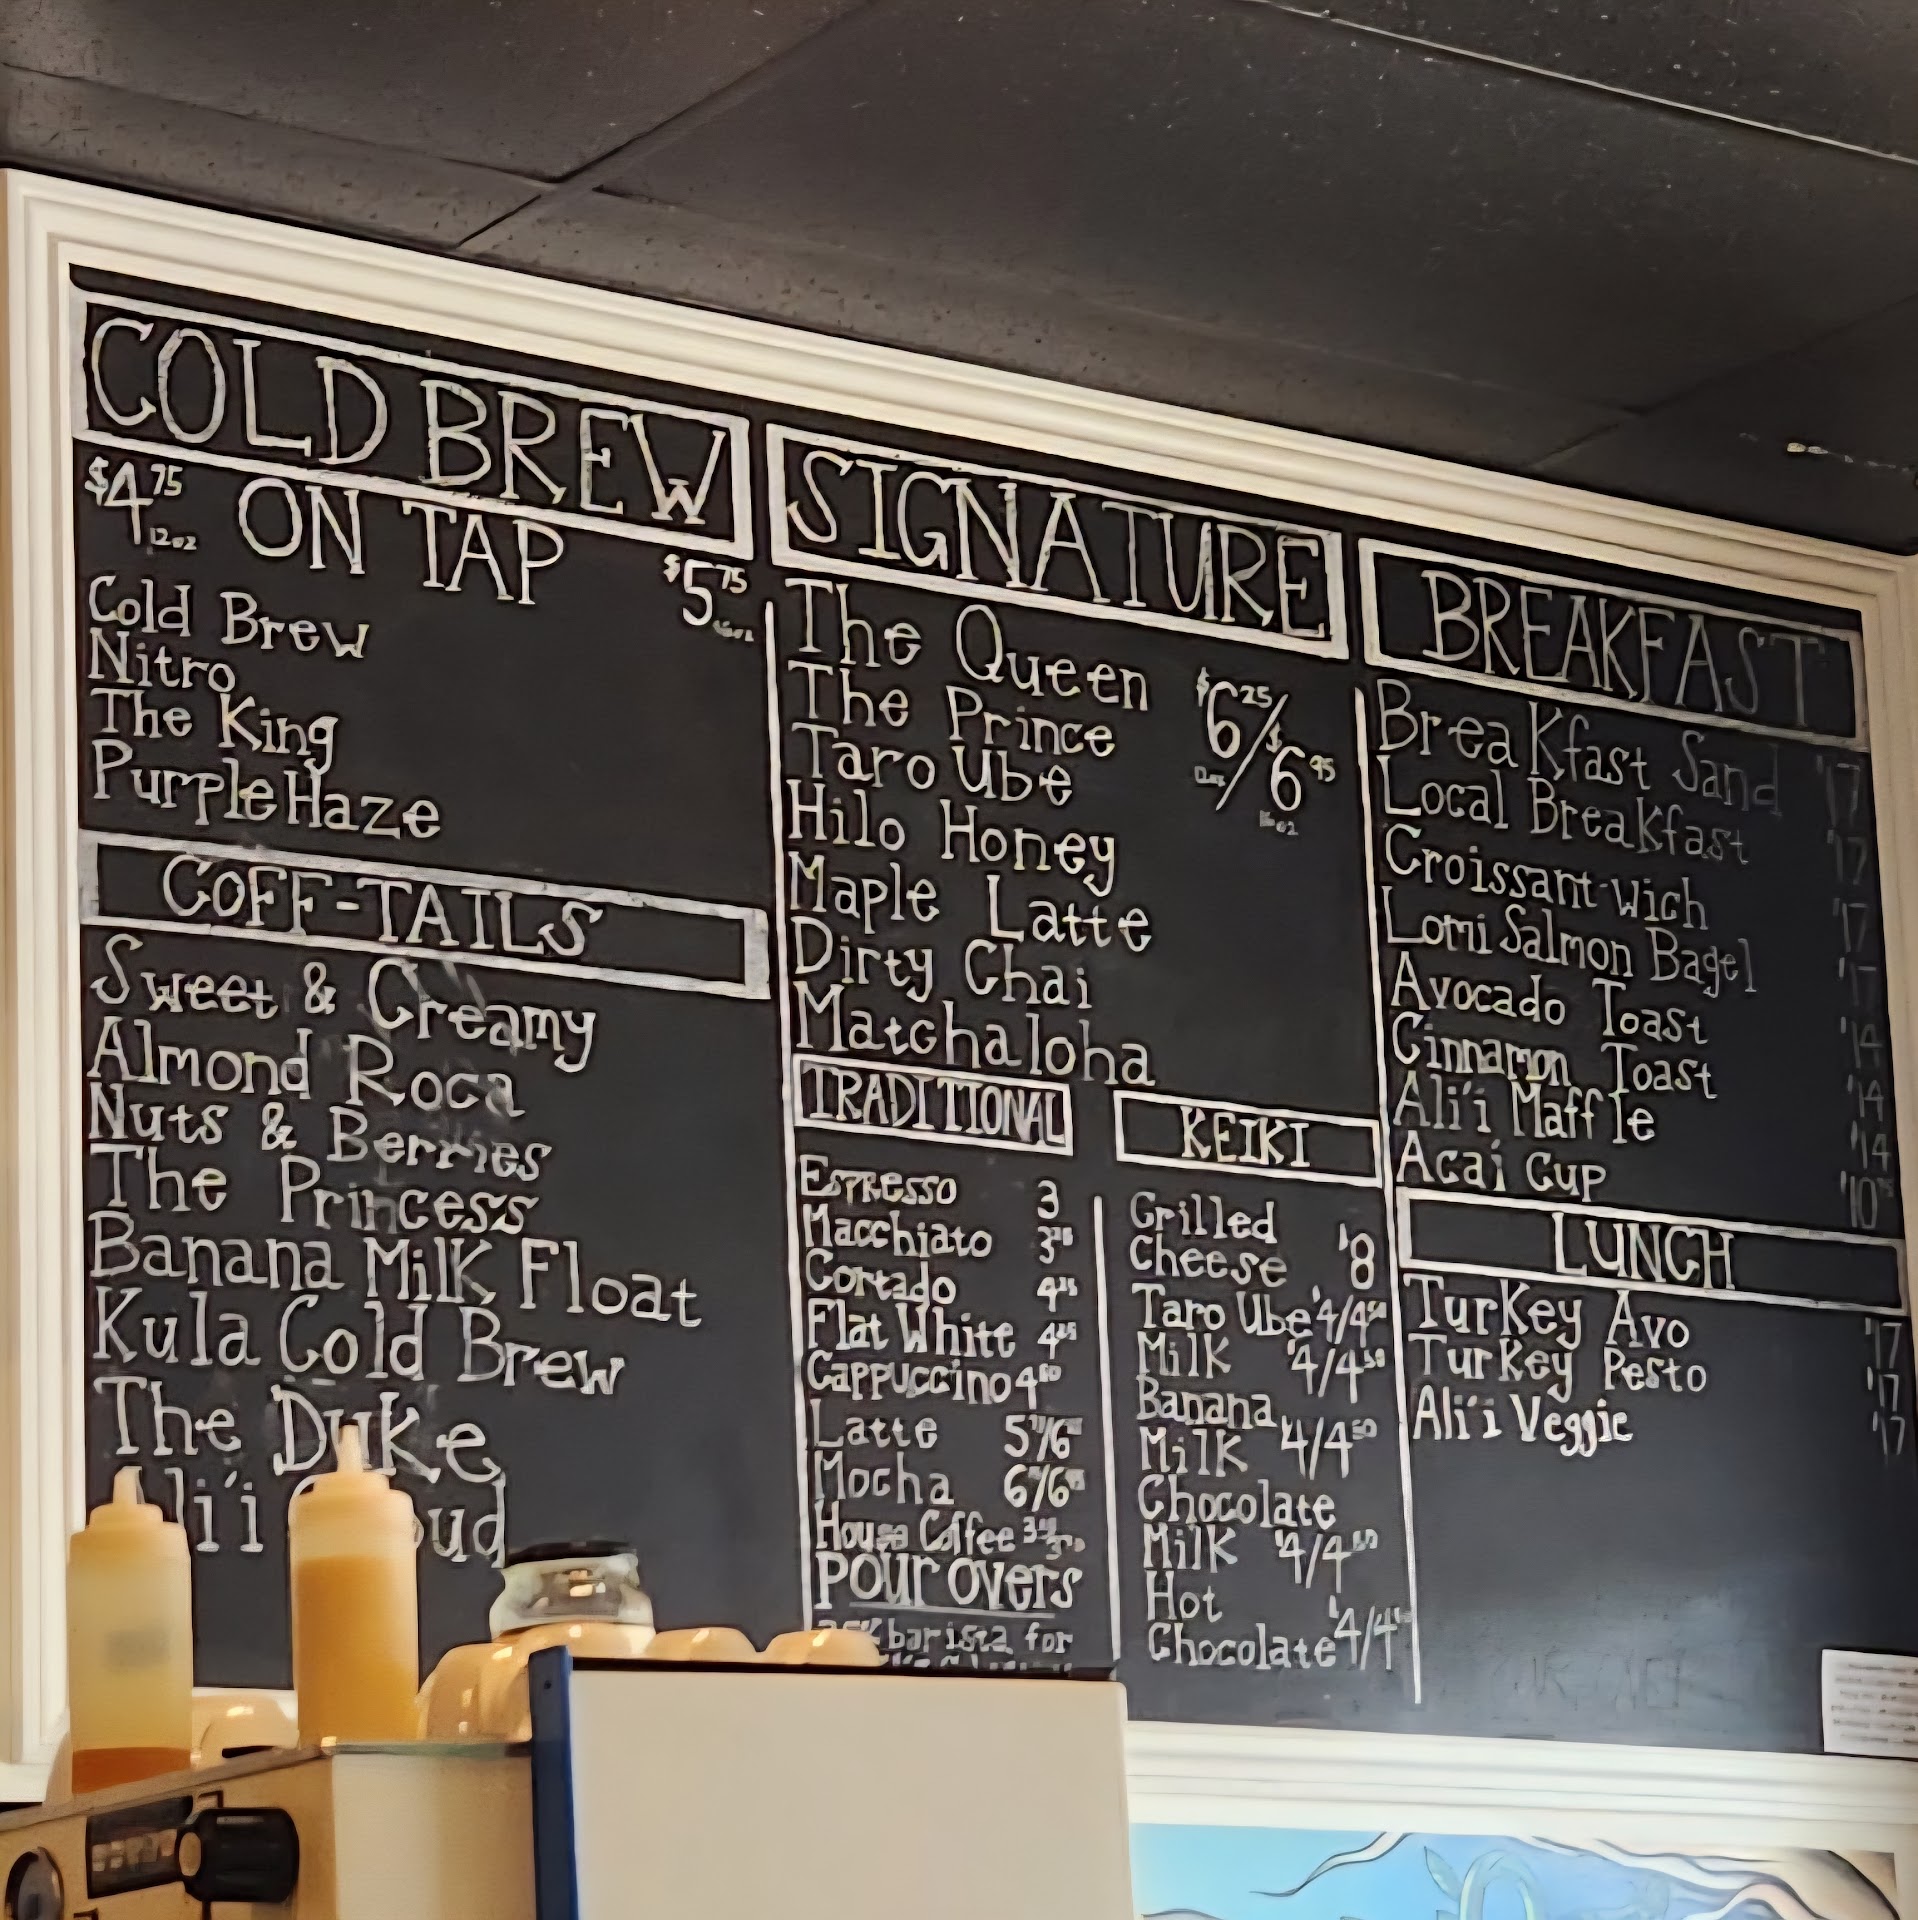 COLD BREW
$4.75 12oz ON TAP $5.75
Cold Brew
Nitro
The King
Purple Haze
COFF-TAILS
Sweet & Creamy
Almond Roca
Nuts & Berries
The Princess
Banana Milk Float
Kula Cold Brew
The Duke
SIGNATURE
The Queen
The Prince $6.25/$6.95
Taro Ube 12oz 16oz
Hilo Honey
Maple Latte
Dirty Chai
Matchaloha
TRADITIONAL
Espresso 3
Macchiato
Cortado
Flat White
Cappuccino
Latte
Mocha
House Coffee
Pour overs
barista for
KEIKI
Grilled
Cheese $8
Taro Ube
Milk
Banana
Milk
Chocolate
Milk
Hot
Chocolate
BREAKFAST
BreaKfast Sand 17
Local BreaKfast 17
Croissant-wich 17
Lomi Salmon Bagel 17
Avocado Toast 14
Cinnamon Toast 14
Ali'i Maffle 14
Acai Cup
LUNCH
TurKey Avo 17
TurKey Pesto 17
Ali'i Veggie 17